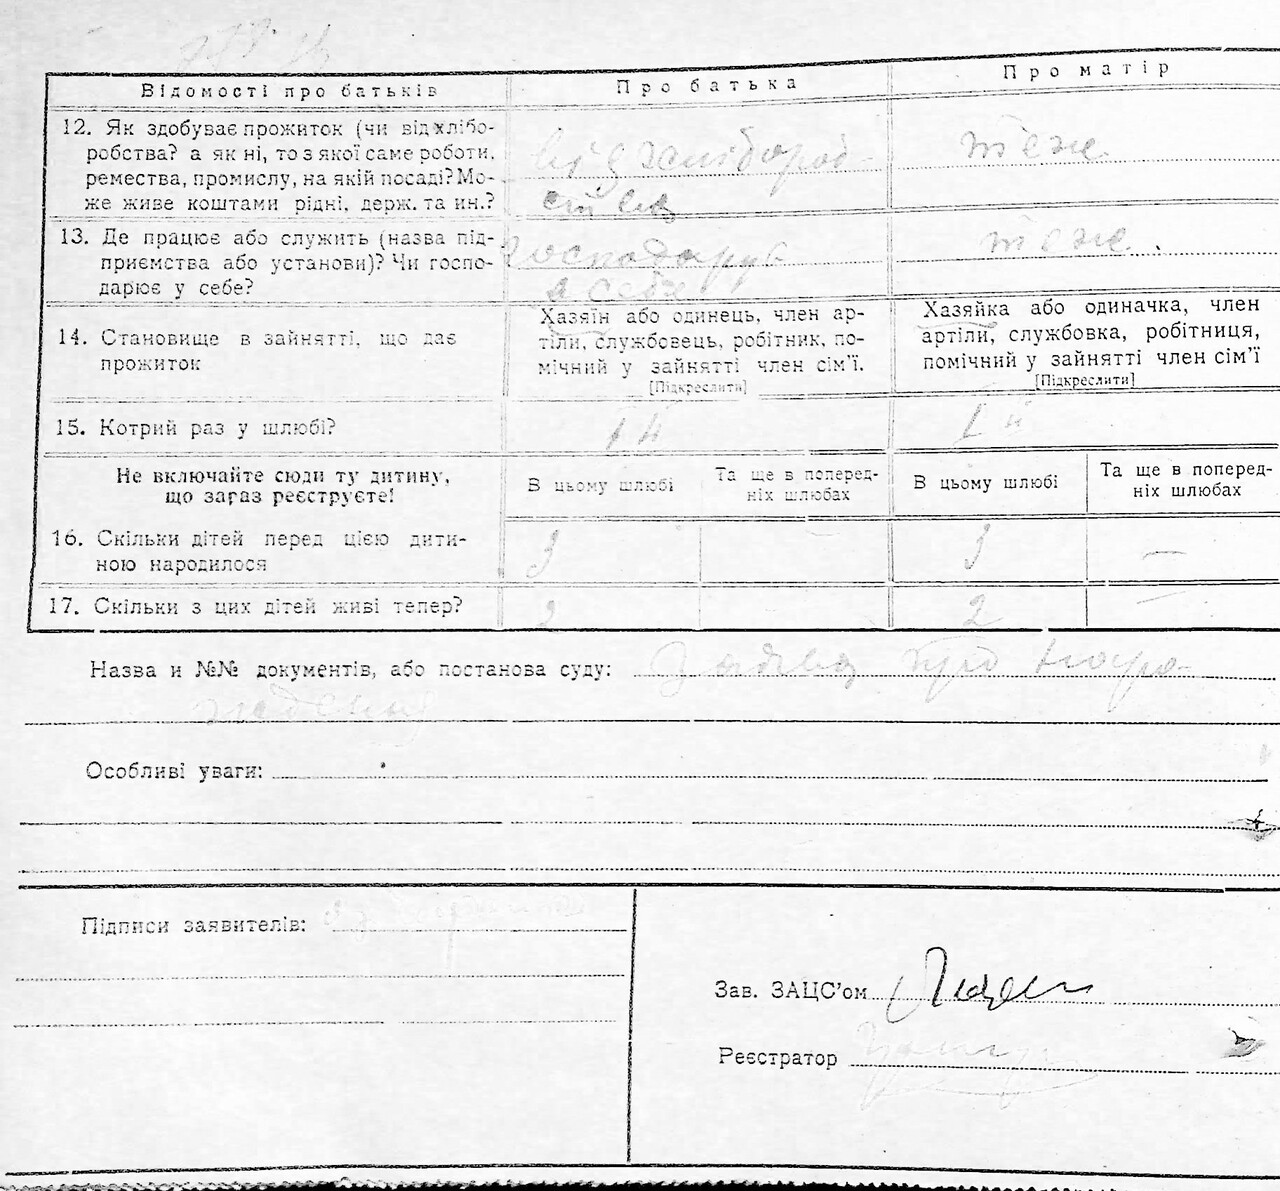 Відомості про батьків
Про батька
Про матір
12. Як здобуває прожиток (чи від хлібо-
робства? а як ні, то з якої саме роботи,
ремества, промислу, на якій посаді? Мо-
же живе коштами рідні, держ. та ин.?
від хлібороб-
ства
теж
13. Де працює або служить (назва під-
приємства або установи)? Чи госпо-
дарює у себе?
господарює
в себе
теж
14. Становище в зайнятті, що дає
прожиток
Хазяїн або одинець, член ар-
тілі, службовець, робітник, по-
мічний у зайнятті член сім'ї.
[Підкреслити]
Хазяйка або одиначка, член
артілі, службовка, робітниця,
помічний у зайнятті член сім'ї
[Підкреслити]
15. Котрий раз у шлюбі?
1й
1й
Не включайте сюди ту дитину,
що зараз реєструєте!
В цьому шлюбі
Та ще в поперед-
ніх шлюбах
В цьому шлюбі
Та ще в поперед-
ніх шлюбах
16. Скільки дітей перед цією дити-
ною народилося
3
3
—
17. Скільки з цих дітей живі тепер?
2
2
—
Назва и №№ документів, або постанова суду: Заява про наро-
ждення
Особливі уваги:
Підписи заявителів:
Зав. ЗАЦС'ом
Реєстратор